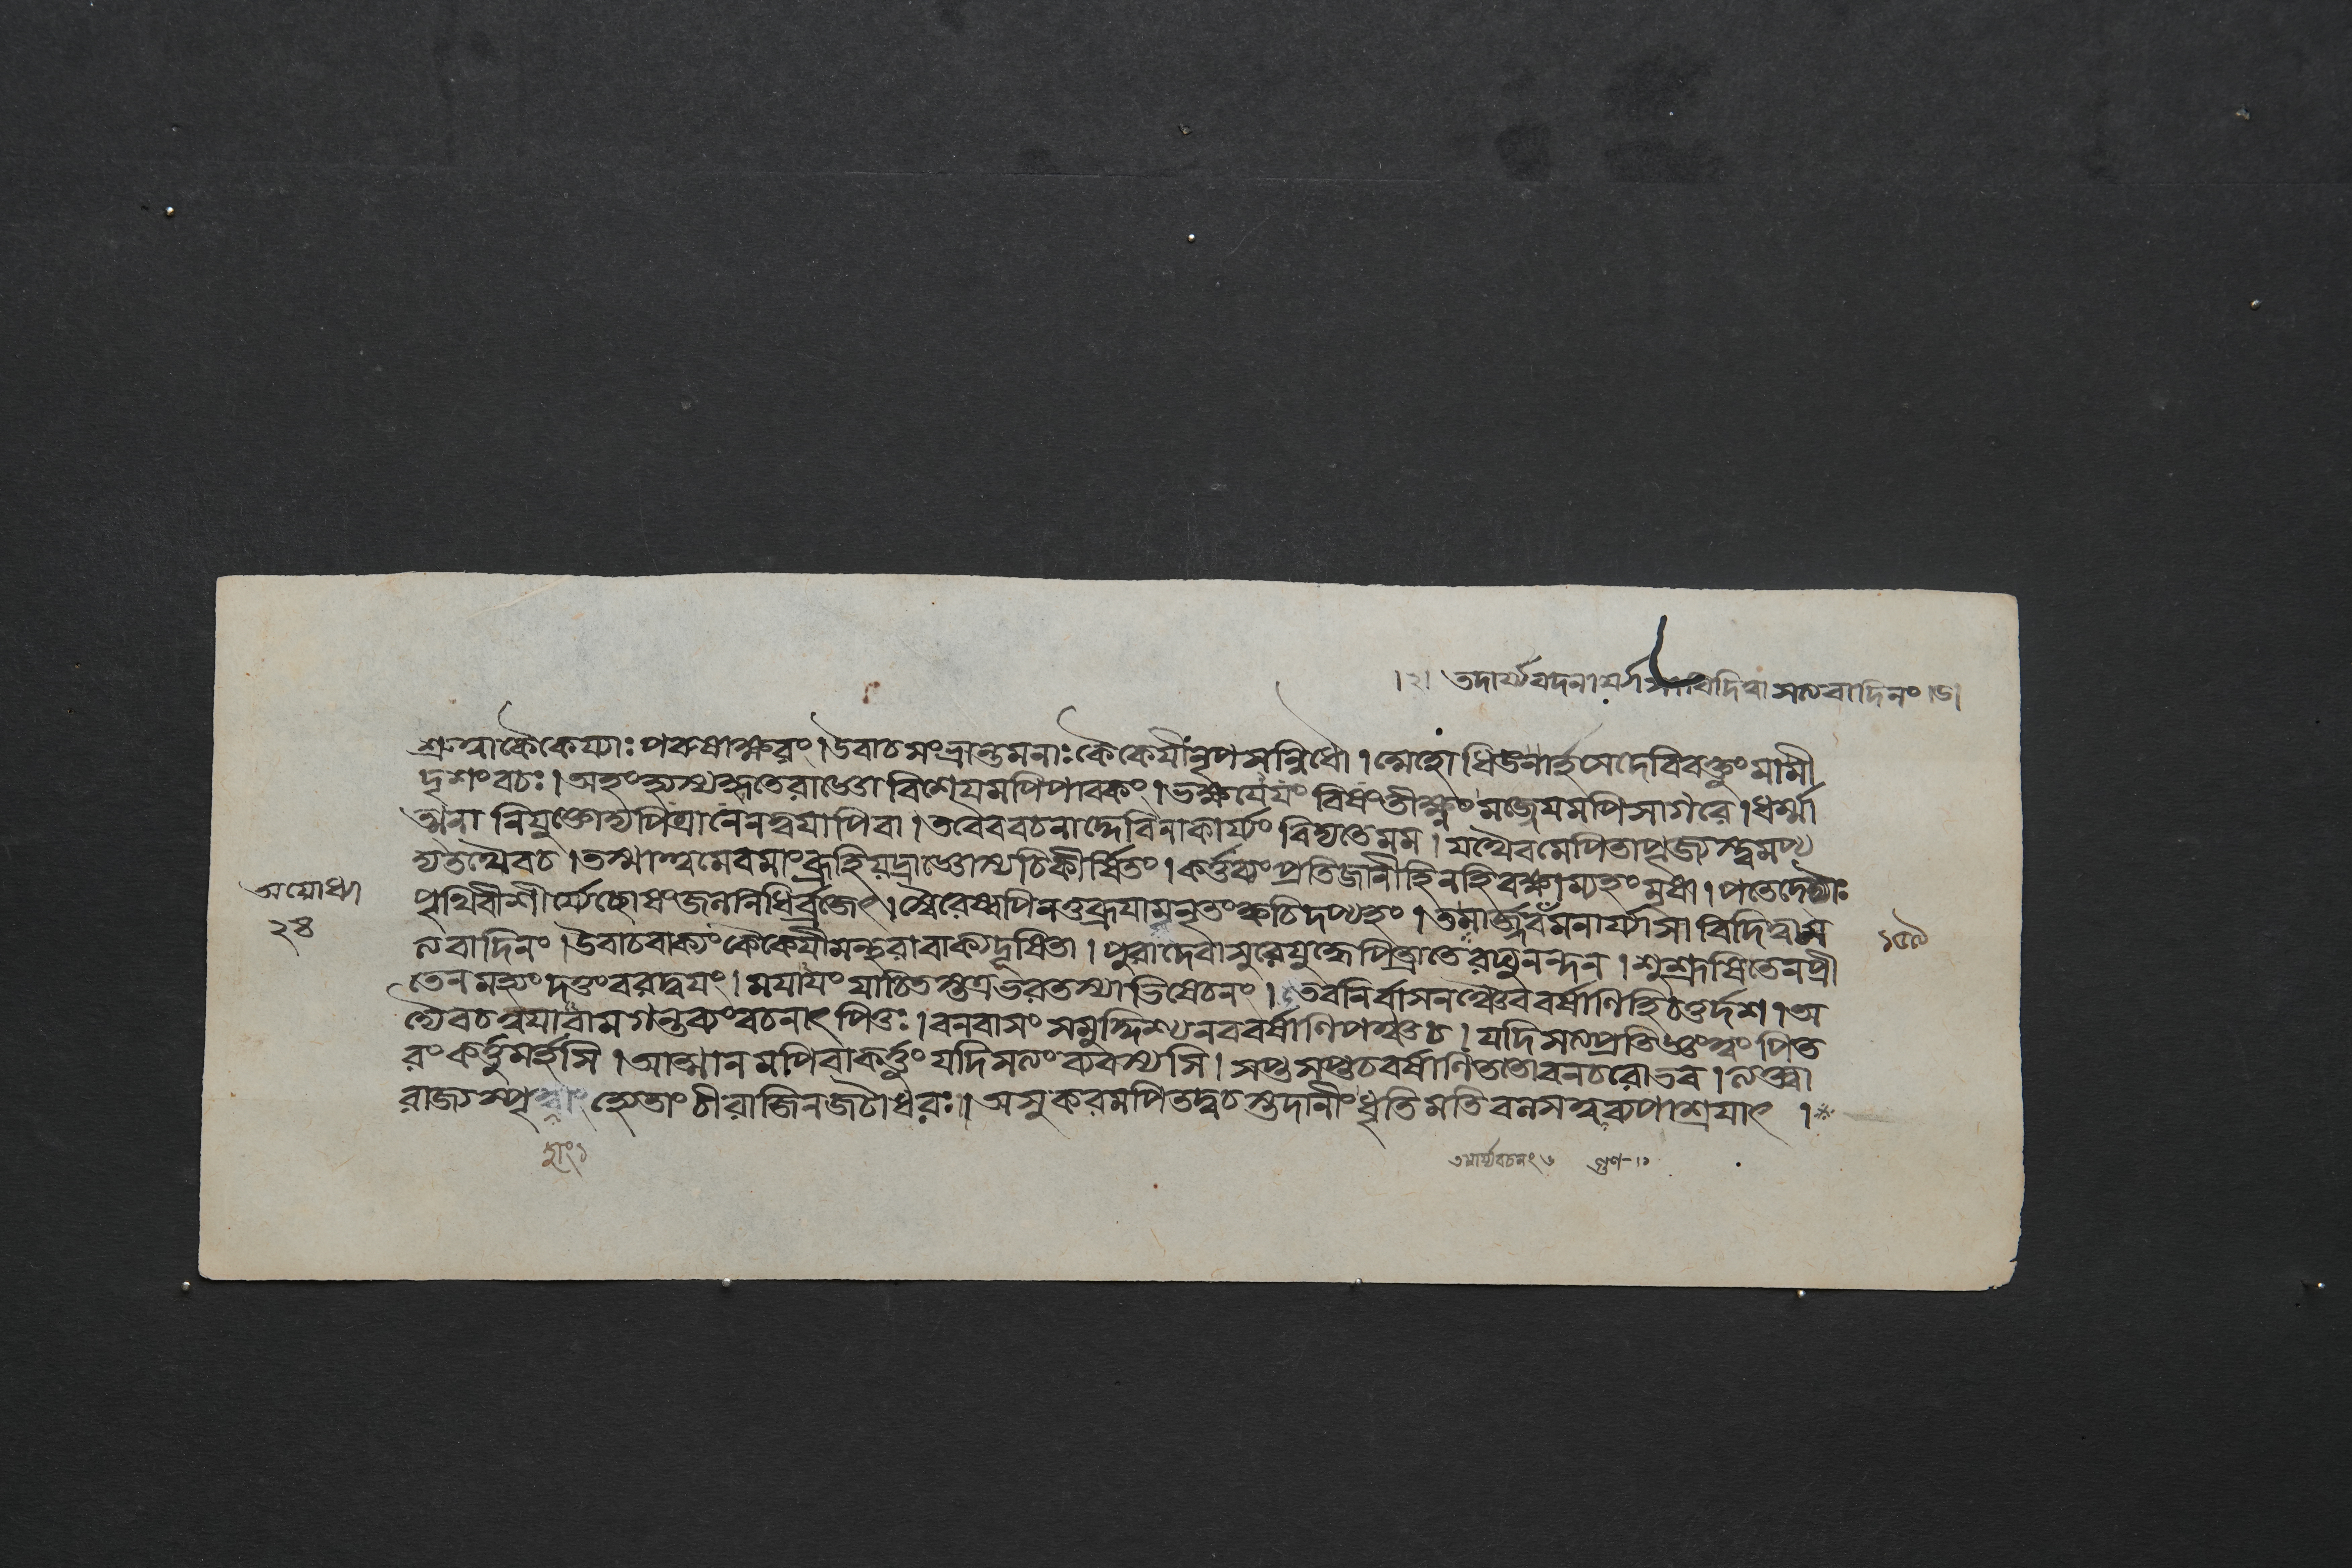 ।২। তদার্য্যবদনা সত্যবাদিনং ।৬।
শ্রুত্বাকৈকেয্যাঃপরুষাক্ষরং।উবাচসংভ্রান্তমনাঃকৈকেযীংনৃপসন্নিধৌ। নার্হসেদেবিবক্তুংমামী
দৃশংবচঃ।অহংহ্যস্যকৃতেরাজ্ঞোবিশেযমপিপাবকং।ভক্ষযেযংবিষংতীক্ষ্ণংমজ্জেযমপিসাগরে।ধর্ম্মা
ত্মনানিযুক্তোহ্যপিত্রানেনত্বযাপিবা।তবৈববচনাদ্দেবিনাকার্য্যংবিদ্যতেমম।যথৈবমেপিতাপূজ্যস্ত্বমপ্য
তথৈবচ।তস্মাত্ত্বমেবমাংব্রূহিযদ্রাজ্ঞোস্যচিকীর্ষিতং।কর্ত্তব্যংপ্রতিজানীহিনহিবক্ষ্যাম্যহংমৃষা।পতেদ্দ্যৌঃ
অযোধ্যা
২৪
পৃথিবীশীর্য্যেচ্ছোষংজলনিধির্ব্রজেৎ।স্বৈরেষ্বপিনতুব্রূযামনৃতংক্বচিদপ্যহং।তমার্জ্জবমনার্য্যাসাবিদিত্বাস
ত্যবাদিনং।উবাচবাক্যংকৈকেযীমন্থরাবাক্যদূষিতা।পুরাদেবাসুরেযুদ্ধেপিত্রাতেরঘুনন্দন।শুশ্রূষিতেনপ্রী
তেনমহ্যংদত্তংবরদ্বযং।মযাযংযাচিতস্তত্রভরতস্যাভিষেচনং।তবনির্বাসনঞ্চৈববর্ষাণিহিচতুর্দশ।অ
দ্যৈবচত্বযারামগন্তব্যংবচনাৎপিতুঃ।বনবাসংসমুদ্দিশ্যনববর্ষাণিপঞ্চচ।যদিসত্যপ্রতিজ্ঞংত্বংপিত
রংকর্ত্তুমর্হসি।আত্মানমপিবাকর্ত্তুংযদিসত্যংব্যবস্যসি।সপ্তসপ্তচবর্ষাণি বনচরোভব।ত্যক্ত্বা
রাজ্যস্পৃহাং চীরাজিনজটাধরঃ।অসুকরমপিতদ্বচস্তদানীংধৃতিমতি ব্যপাশ্রযাৎ ।*
তমার্য্যবচনং ৬